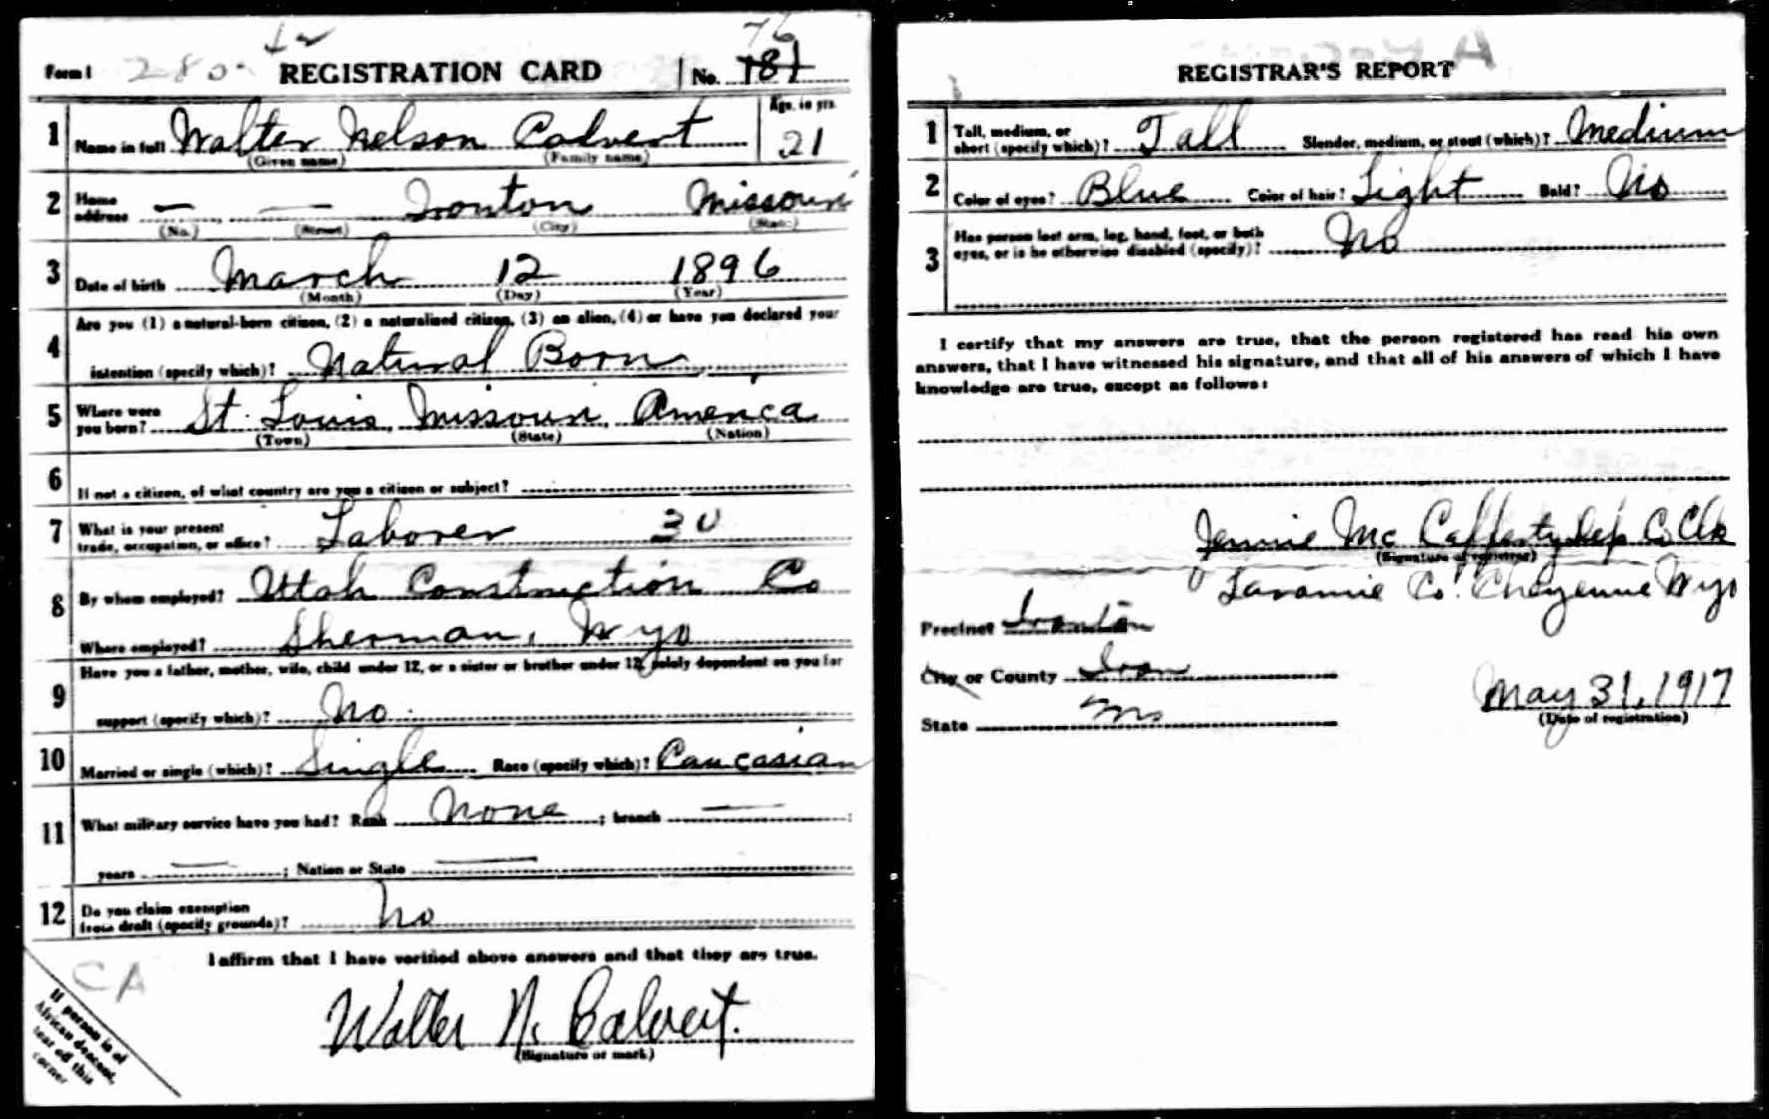 76
Form 1 280 REGISTRATION CARD No. 181
Age, in yrs.
1 Name in full Walter Nelson Calvert 21
(Given name) (Family name)
2 Home address — — Ironton Missouri
(No.) (Street) (City) (State)
3 Date of birth March 12 1896
(Month) (Day) (Year)
Are you (1) a natural-born citizen, (2) a naturalized citizen, (3) an alien, (4) or have you declared your
4 intention (specify which)? Natural Born
5 Where were you born? St. Louis, Missouri, America
(Town) (State) (Nation)
6 If not a citizen, of what country are you a citizen or subject?
7 What is your present
trade, occupation, or office? Laborer 30
8 By whom employed? Utah Construction Co
Where employed? Sherman, Wyo
Have you a father, mother, wife, child under 12, or a sister or brother under 12, solely dependent on you for
9 support (specify which)? No
10 Married or single (which)? Single Race (specify which)? Caucasian
11 What military service have you had? Rank None ; branch — ;
years — ; Nation or State —
12 Do you claim exemption
from draft (specify grounds)? No
I affirm that I have verified above answers and that they are true.
CA
Walter N. Calvert.
(Signature or mark)
If person is of
African descent,
tear off this
corner
REGISTRAR'S REPORT
1 Tall, medium, or
short (specify which)? Tall Slender, medium, or stout (which)? Medium
2 Color of eyes? Blue Color of hair? Light Bald? No
3 Has person lost arm, leg, hand, foot, or both
eyes, or is he otherwise disabled (specify)? No
I certify that my answers are true, that the person registered has read his own
answers, that I have witnessed his signature, and that all of his answers of which I have
knowledge are true, except as follows:
Jennie McCafferty dep Co Clk
(Signature of registrar)
Laramie Co. Cheyenne Wyo
Precinct Ironton
City or County Iron
State Mo
May 31, 1917
(Date of registration)